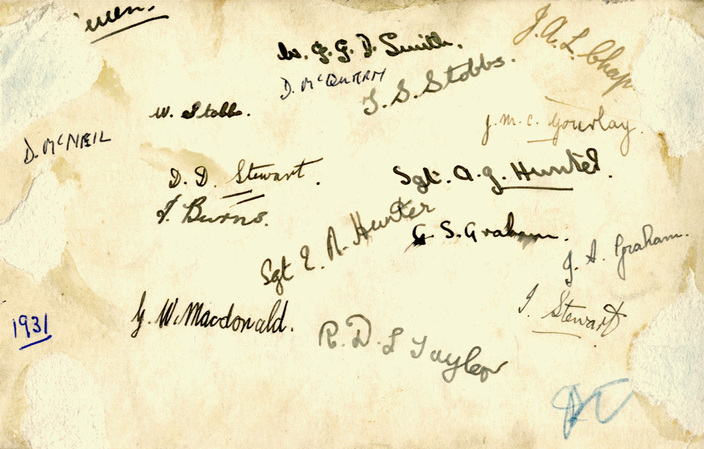 W. G. G. D. Smith.
J. A. L. Chap
D. McQUEEN
J. S. Stobbs.
W. Stobbs.
J. M. C. Gourlay.
D. McNEIL
D. D. Stewart.
Sgt. A. G. Hunter.
J. Burns.
Sgt E. R. Hunter
G. S. Graham.
J. A. Graham.
J. Stewart
G. W. Macdonald.
1931
R. D. L Taylor